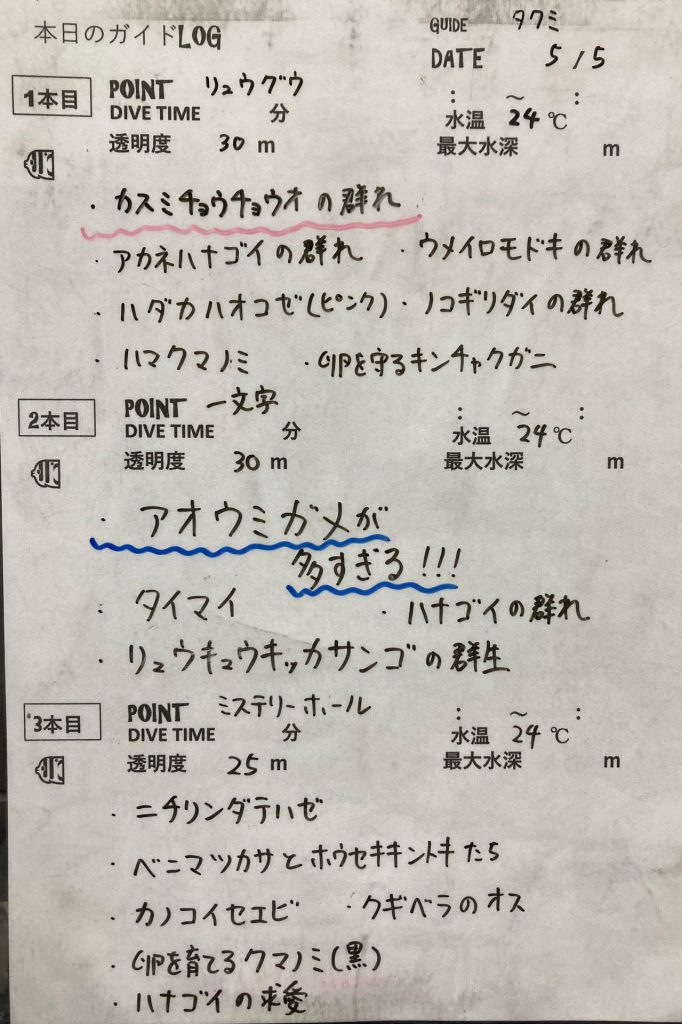 本日のガイドLOG
GUIDE タクミ
DATE 5/5
1本目 POINT リュウグウ : ～ :
DIVE TIME 分 水温 24℃
透明度 30 m 最大水深 m
・カスミチョウチョウオの群れ
・アカネハナゴイの群れ ・ウメイロモドキの群れ
・ハダカハオコゼ(ピンク) ・ノコギリダイの群れ
・ハマクマノミ ・卵を守るキンチャクガニ
2本目 POINT 一文字 : ～ :
DIVE TIME 分 水温 24℃
透明度 30 m 最大水深 m
・アオウミガメが
多すぎる!!!
・タイマイ ・ハナゴイの群れ
・リュウキュウキッカサンゴの群生
3本目 POINT ミステリーホール : ～ :
DIVE TIME 分 水温 24℃
透明度 25 m 最大水深 m
・ニチリンダテハゼ
・ベニマツカサとホウセキキントキたち
・カノコイセエビ ・クギベラのオス
・卵を育てるクマノミ(黒)
・ハナゴイの求愛